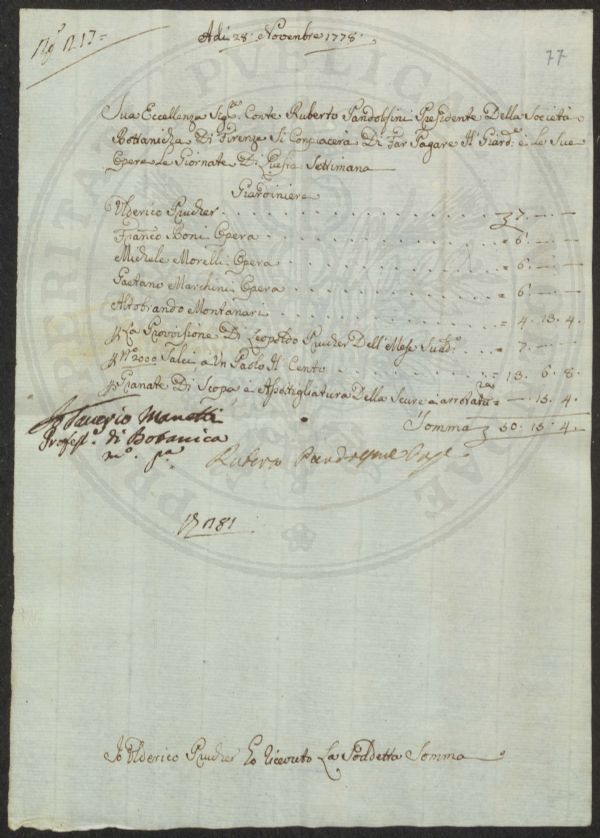 Adi 28. Novembre 1778.
77
Sua Eccellenza Sigr. Conte Ruberto Pandolfini Presidente Della Società
Bottanicha Di Firenze Si Conpiacerà Di Far Pagare Al Giardre. e Le Sue
Opere Le Giornate Di Questa Settimana
Giardiniere
Ulderico Prucher 7.
Franco Boni Opera = 6.
Michele Morelli Opera = 6.
Gaetano Marchini Opera = 6.
Aldobrando Montanari = 4. 13. 4.
Pr La Provvisione Di Leopoldo Prucher Dell'Mese Sudo. = 7.
Pr No 2000 Salci a Un Paolo Il Cento = 13. 6. 8.
Pr Granate Di Scopa e Della Scure e arrotata = 13. 4.
Somma 50. 13. 4.
Saverio Manetti
Profesre. di Botanica
mo. pa.
781
Io Ulderico Prucher Ho Riceuto La Soddetta Somma